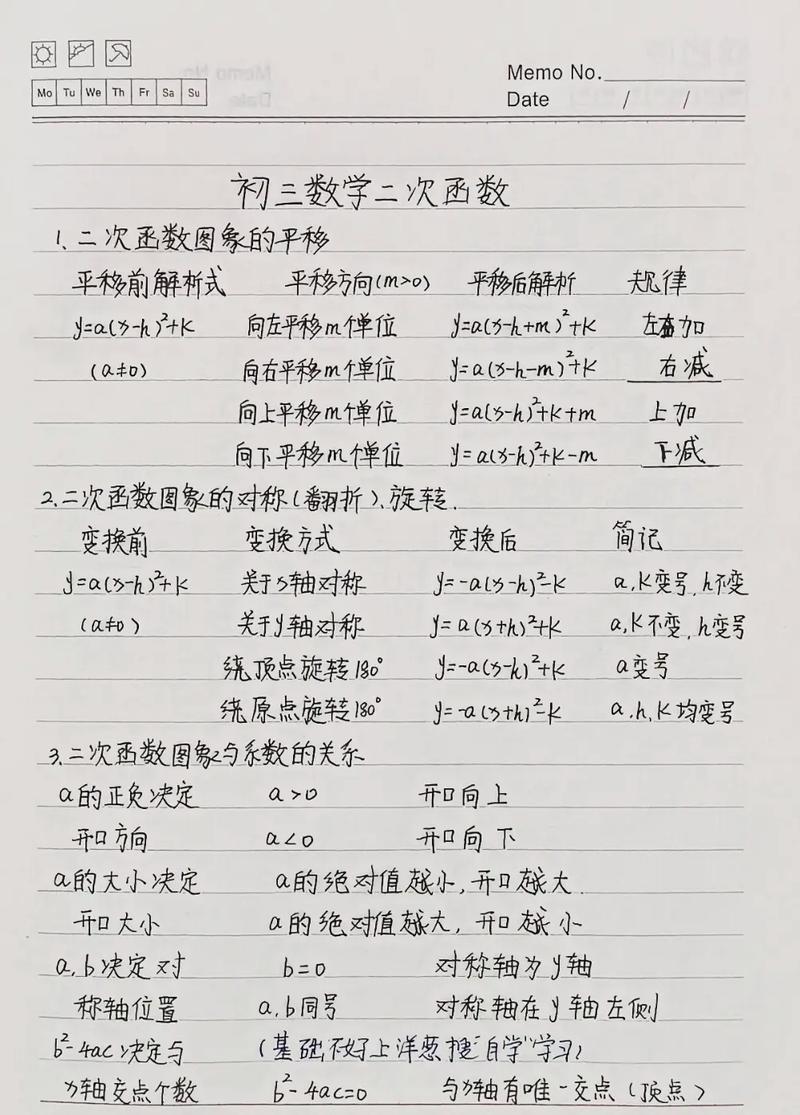 Memo No.
Mo Tu We Th Fr Sa Su
Date / /
初三数学二次函数
1、二次函数图象的平移
平移前解析式 平移方向(m>0) 平移后解析 规律
y=a(x-h)²+k 向左平移m个单位 y=a(x-h+m)²+k 左加
(a≠0) 向右平移m个单位 y=a(x-h-m)²+k 右减
向上平移m个单位 y=a(x-h)²+k+m 上加
向下平移m个单位 y=a(x-h)²+k-m 下减
2.二次函数图象的对称(翻折)、旋转.
变换前 变换方式 变换后 简记
y=a(x-h)²+k 关于x轴对称 y=-a(x-h)²-k a,k变号,h不变
(a≠0) 关于y轴对称 y=a(x+h)²+k a,k不变,h变号
绕顶点旋转180° y=-a(x-h)²+k a变号
绕原点旋转180° y=-a(x+h)²-k a.h,k均变号
3.二次函数图象与系数的关系
a的正负决定 a>0 开口向上
开口方向 a<0 开口向下
a的大小决定 a的绝对值越小,开口越大.
开口大小 a的绝对值越大,开口越小
a,b决定对 b=0 对称轴为y轴
称轴位置 a,b同号 对称轴在y轴左侧
b²-4ac决定与 (基础不好上洋葱搜"自学"学习)
x轴交点个数 b²-4ac=0 与x轴有唯一交点(顶点)